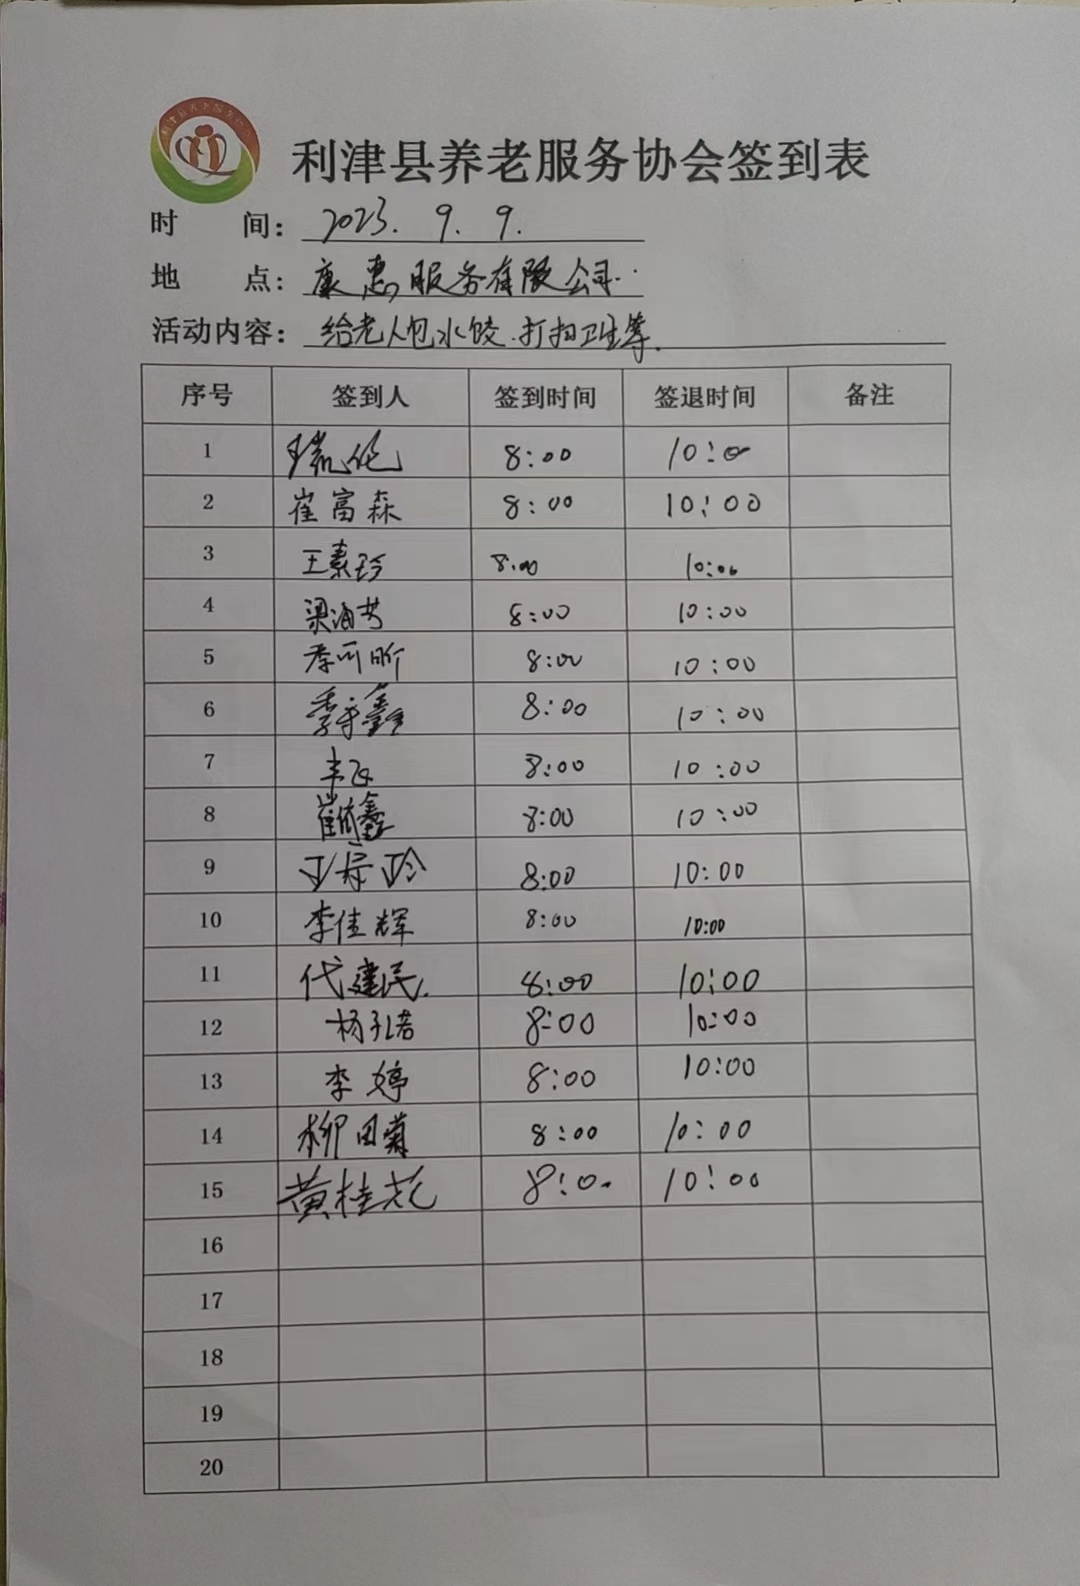 利津县养老服务协会签到表
时 间： 2023. 9. 9.
地 点： 康惠服务有限公司
活动内容： 给老人包水饺.打扫卫生等.
序号 签到人 签到时间 签退时间 备注
1 8:00 10:00
2 崔富森 8:00 10:00
3 王素玲 8:00 10:00
4 梁海芳 8:00 10:00
5 8:00 10:00
6 季守鑫 8:00 10:00
7 8:00 10:00
8 8:00 10:00
9 8:00 10:00
10 李佳辉 8:00 10:00
11 代建民. 8:00 10:00
12 8:00 10:00
13 李婷 8:00 10:00
14 柳田菊 8:00 10:00
15 黄桂花 8:00 10:00
16
17
18
19
20